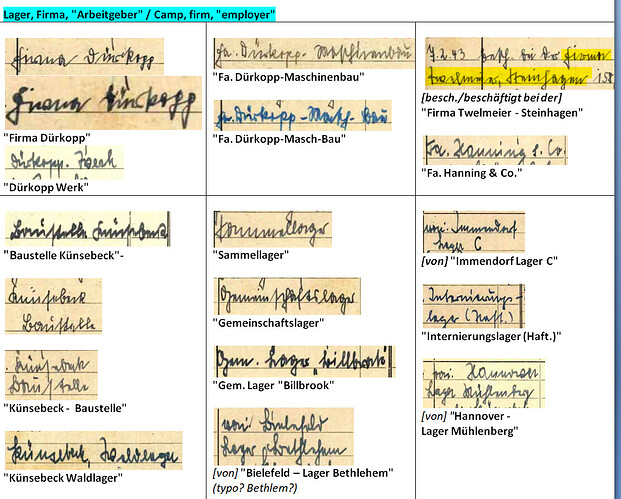 Lager, Firma, "Arbeitgeber" / Camp, firm, "employer"
Firma Dürkopp
Firma Dürkopp
"Firma Dürkopp"
Dürkopp. Werk
"Dürkopp Werk"
Fa. Dürkopp-Maschinenbau
"Fa. Dürkopp-Maschinenbau"
Fa. Dürkopp-Masch-Bau
"Fa. Dürkopp-Masch-Bau"
7.2.43 besch. bei der Firma
Twelmeier, Steinhagen 158
[besch./beschäftigt bei der]
"Firma Twelmeier - Steinhagen"
Fa. Hanning & Co.
"Fa. Hanning & Co."
Baustelle Künsebeck
"Baustelle Künsebeck"-
Künsebeck
Baustelle
Künsebeck
Baustelle
"Künsebeck - Baustelle"
Künsebeck, Waldlager
"Künsebeck Waldlager"
Sammellager
"Sammellager"
Gemeinschaftslager
"Gemeinschaftslager"
Gem. Lager "Billbrook"
"Gem. Lager "Billbrook"
von Bielefeld
Lager Bethlehem
[von] "Bielefeld – Lager Bethlehem"
(typo? Bethlem?)
von Immendorf
Lager C
[von] "Immendorf Lager C"
Internierungs-
lager (Haft.)
"Internierungslager (Haft.)"
von Hannover
Lager Mühlenberg
[von] "Hannover -
Lager Mühlenberg"